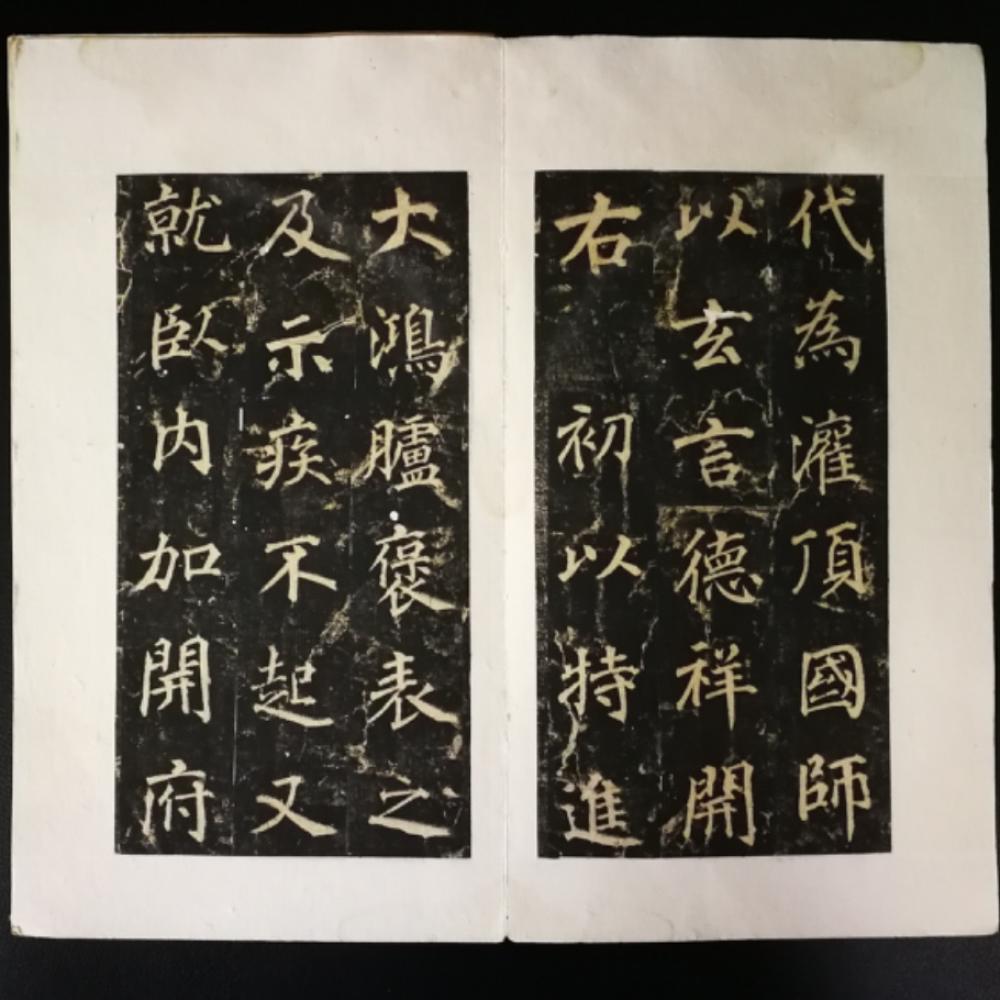 代為灌頂國師
以玄言德祥開
右 初以特進
大鴻臚褒表之
及示疾不起又
就臥內加開府